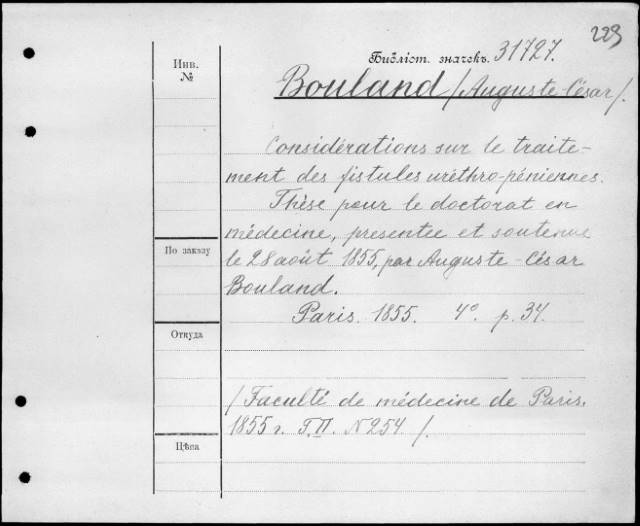 223
Инв.
№
Библіот. значекъ. 31727.
Bouland /Auguste César/.
Considérations sur le traite-
ment des fistules uréthro-péniennes.
Thèse pour le doctorat en
médecine, présentée et soutenue
По заказу
le 28 août 1855, par Auguste-César
Bouland.
Paris. 1855. 4º. p. 34.
Откуда
/Faculté de médecine de Paris.
1855 г. T. II. N 254 /.
Цѣна